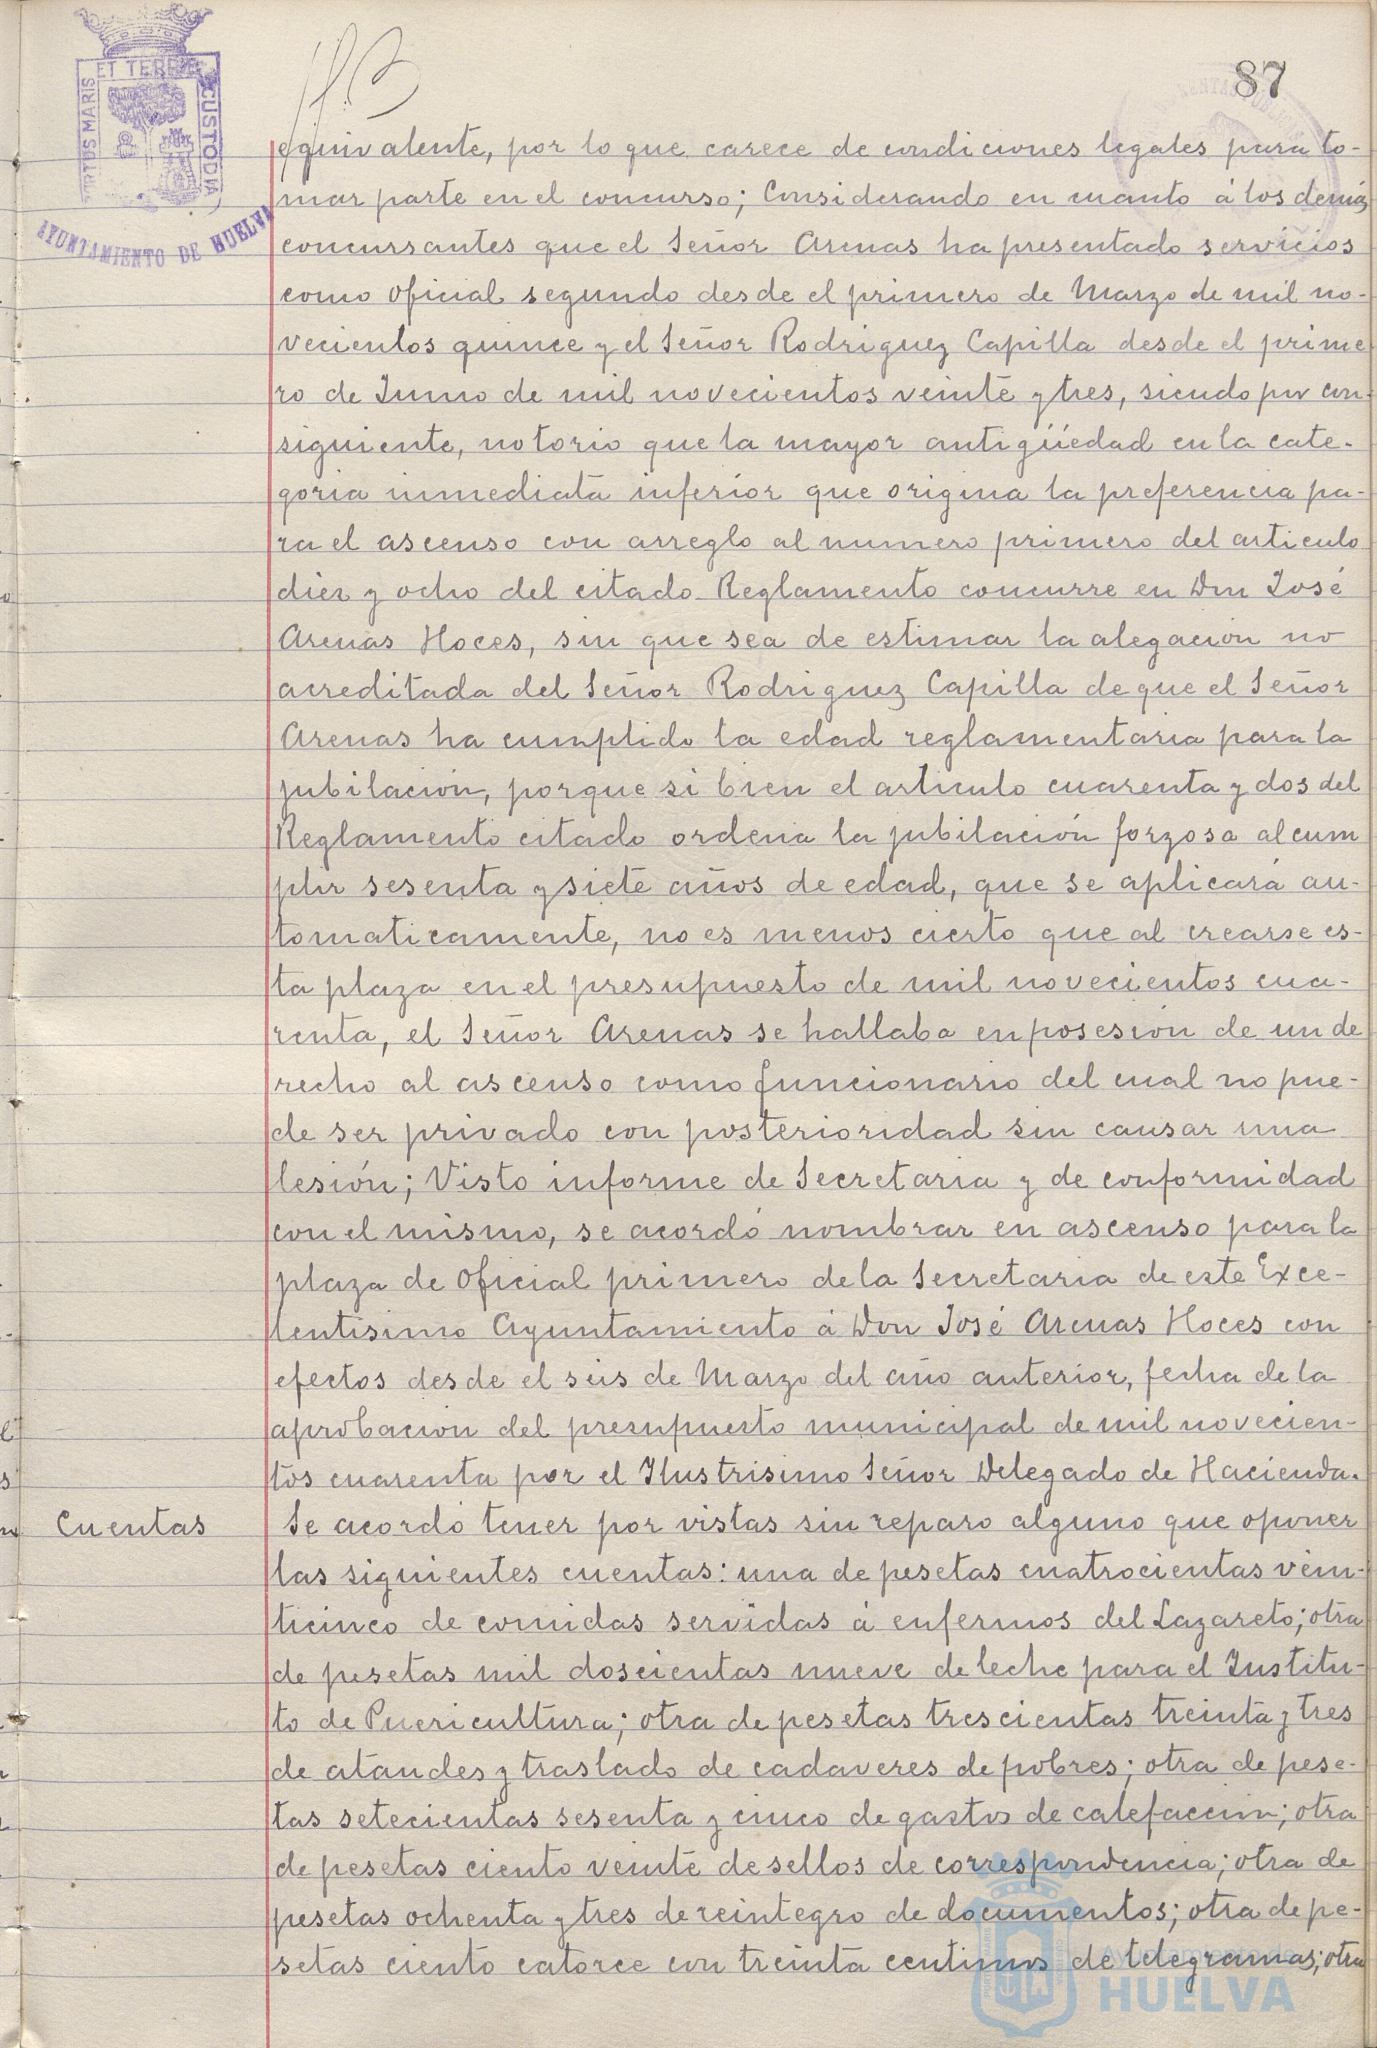 87
ET TERRÆ
PORTUS MARIS
CUSTODIA
AYUNTAMIENTO DE HUELVA
equivalente, por lo que carece de condiciones legales para to-
mar parte en el concurso; Considerando en cuanto á los demás
concursantes que el Señor Arenas ha presentado servicios
como oficial segundo desde el primero de Marzo de mil no-
vecientos quince y el Señor Rodriguez Capilla desde el prime
ro de Junio de mil novecientos veinte y tres, siendo por con-
siguiente, notorio que la mayor antigüedad en la cate-
goria inmediata inferior que origina la preferencia pa-
ra el ascenso con arreglo al numero primero del articulo
diez y ocho del citado Reglamento concurre en Don José
Arenas Hoces, sin que sea de estimar la alegación no
acreditada del Señor Rodriguez Capilla de que el Señor
Arenas ha cumplido la edad reglamentaria para la
jubilación, porque si bien el articulo cuarenta y dos del
Reglamento citado ordena la jubilación forzosa al cum
plir sesenta y siete años de edad, que se aplicará au-
tomaticamente, no es menos cierto que al crearse es-
ta plaza en el presupuesto de mil novecientos cua-
renta, el Señor Arenas se hallaba en posesión de un de
recho al ascenso como funcionario del cual no pue-
de ser privado con posterioridad sin causar una
lesión; Visto informe de Secretaria y de conformidad
con el mismo, se acordó nombrar en ascenso para la
plaza de oficial primero de la Secretaria de este Exce-
lentisimo Ayuntamiento á Don José Arenas Hoces con
efectos desde el seis de Marzo del año anterior, fecha de la
aprobación del presupuesto municipal de mil novecien-
tos cuarenta por el Ilustrisimo Señor Delegado de Hacienda.
Cuentas Se acordó tener por vistas sin reparo alguno que oponer
las siguientes cuentas: una de pesetas cuatrocientas vein-
ticinco de comidas servidas á enfermos del Lazareto; otra
de pesetas mil doscientas nueve de leche para el Institu-
to de Puericultura; otra de pesetas trescientas treinta y tres
de ataudes y traslado de cadaveres de pobres; otra de pese-
tas setecientas sesenta y cinco de gastos de calefacción; otra
de pesetas ciento veinte de sellos de correspondencia; otra de
pesetas ochenta y tres de reintegro de documentos; otra de pe-
setas ciento catorce con treinta centimos de telegramas; otra
Ayuntamiento de
HUELVA